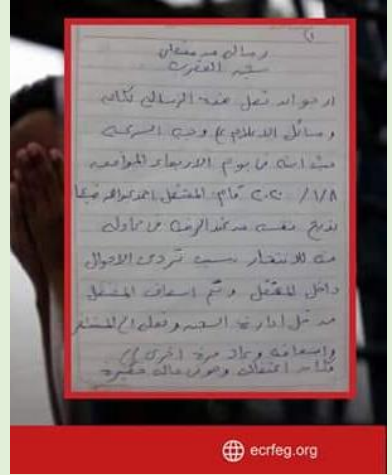 رسالة من معتقلي
سجن العقرب
ارجو ان تصل هذه الرسالة لكافة
وسائل الاعلام ع وجه السرعة
حيث انه في يوم الاربعاء الموافق
٢٠٢٠/١/٨ قام المعتقل احمد
بذبح نفسه من في محاولة
منه للانتحار بسبب تردي الاحوال
داخل المعتقل وتم اسعاف المعتقل
من قبل ادارة السجن ونقله الي المستشفى
واسعافه وعاد مرة اخرى الي
مكان اعتقاله وهو في حالة خطيرة
ecrfeg.org